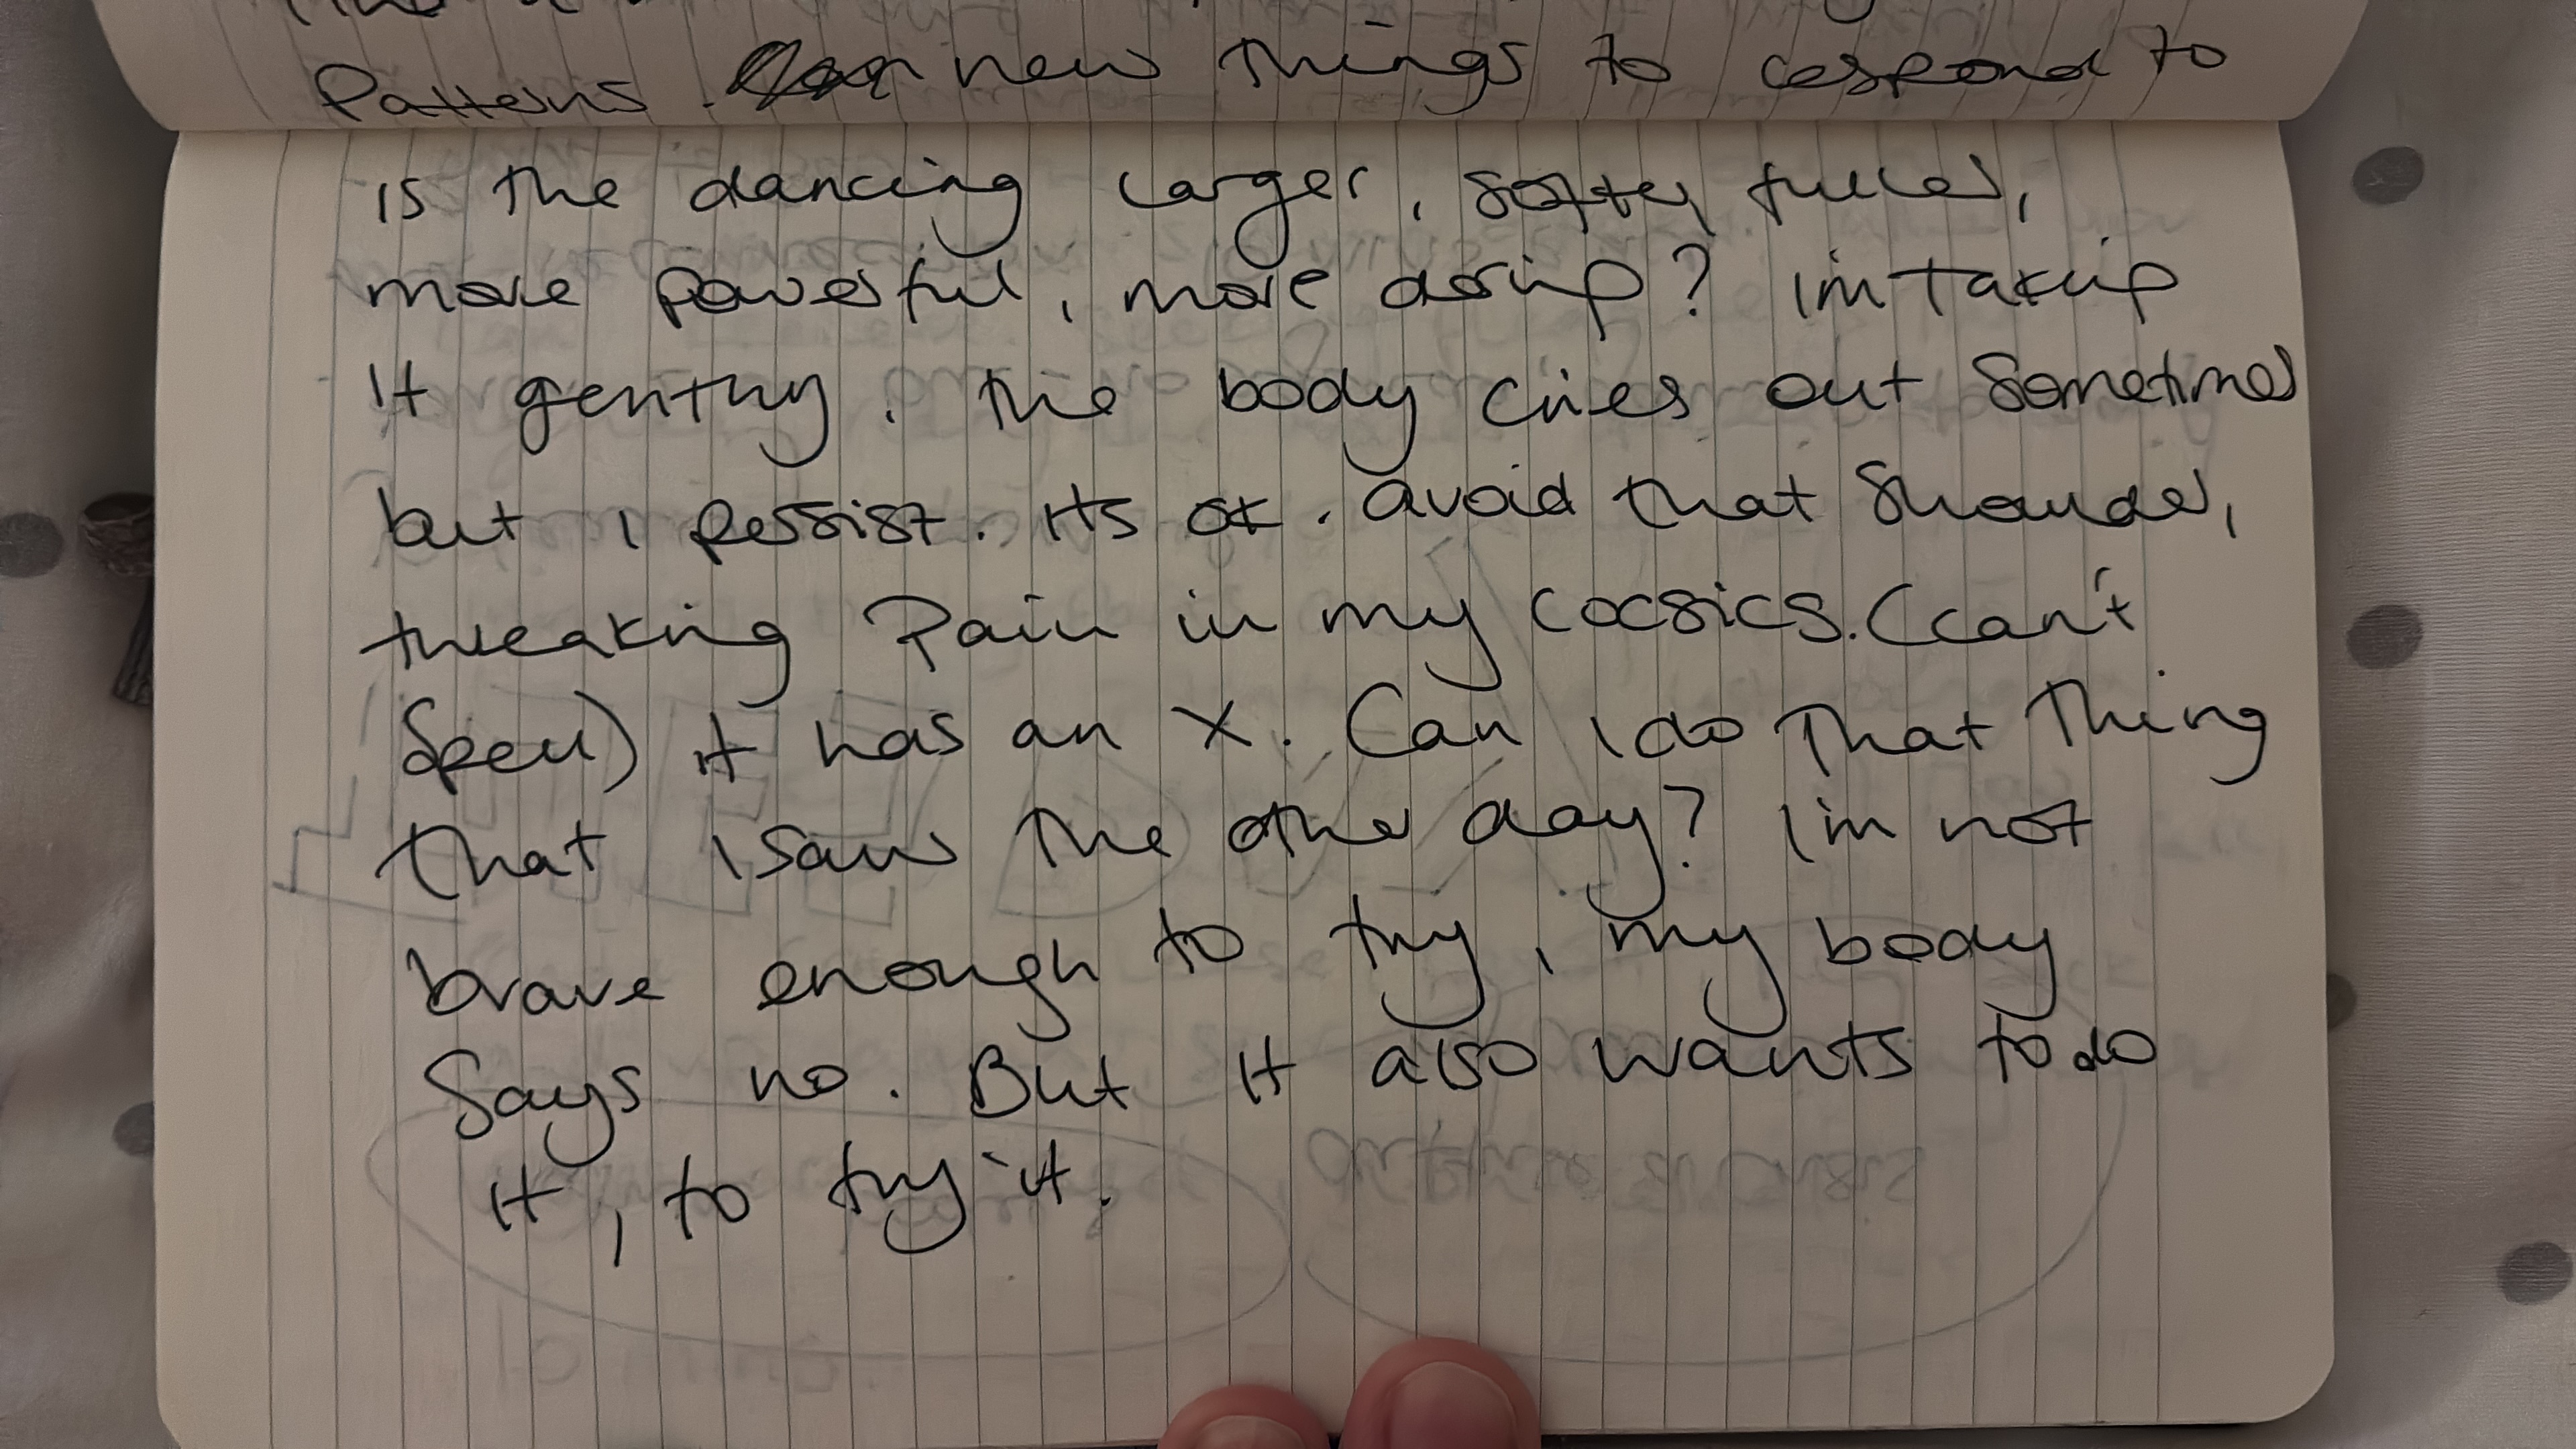 Patterns. new things to respond to
is the dancing larger, softer, fuller,
more powerful, more daring? I'm taking
it gently. The body cries out sometimes
but I persist. Its ok. avoid that shoulder,
tweaking pain in my cocsics. (can't
spell) it has an X. Can I do that thing
that I saw the other day? I'm not
brave enough to try, my body
says no. But it also wants to do
it, to try it.